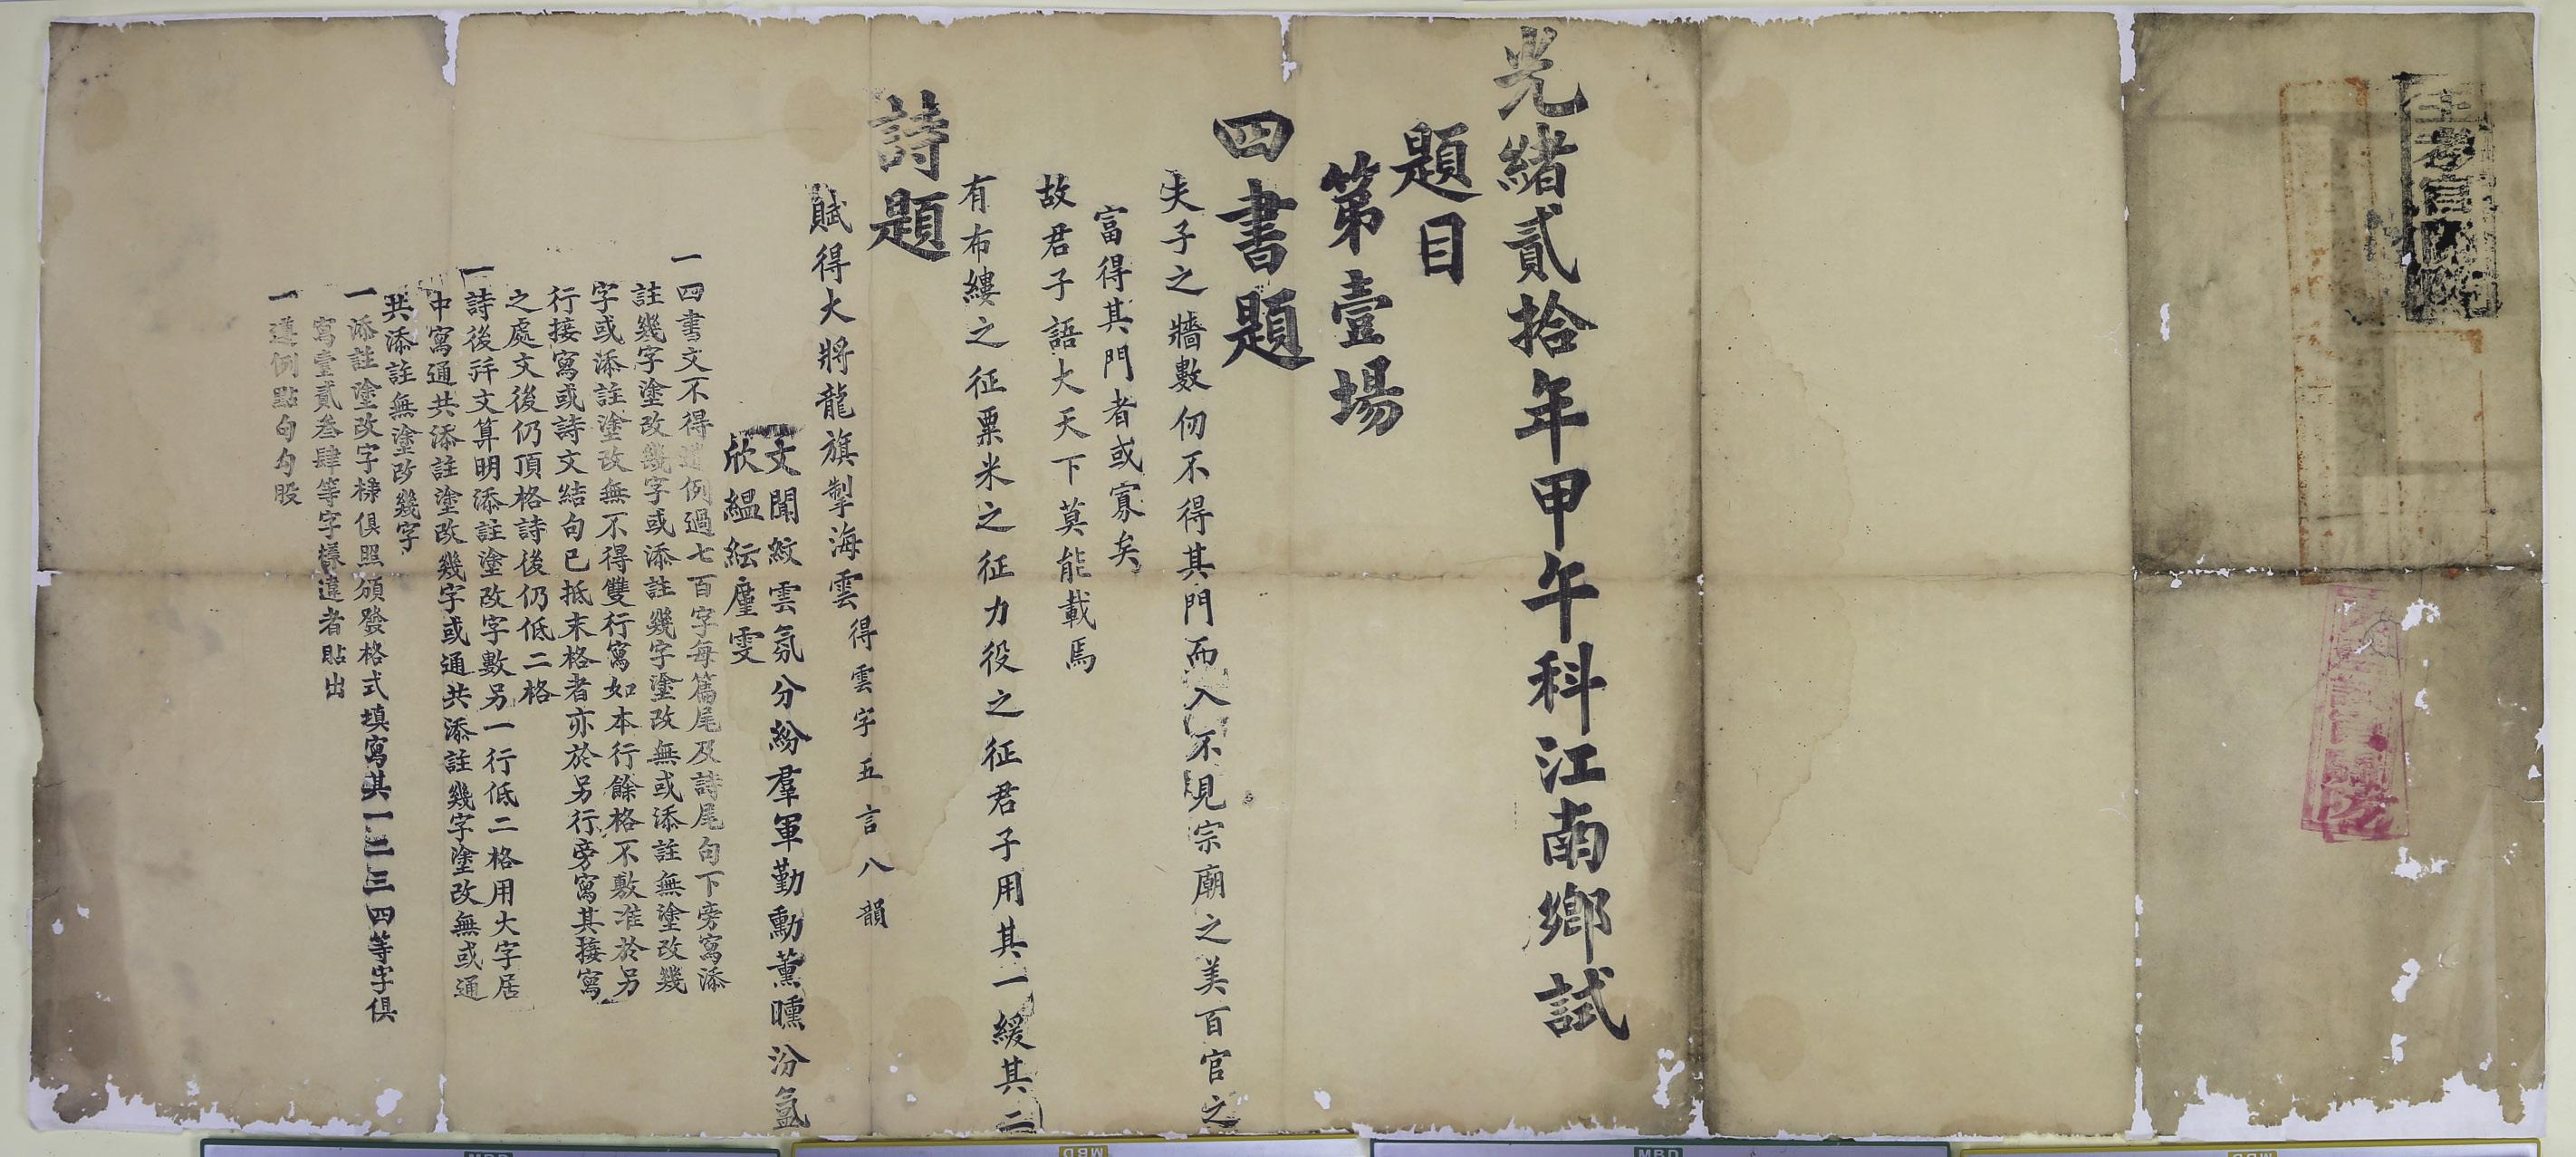 主考官關防
光緒貳拾年甲午科江南鄉試
題目
第壹場
四書題
夫子之牆數仞不得其門而入不見宗廟之美百官之
富得其門者或寡矣
故君子語大天下莫能載焉
有布縷之征粟米之征力役之征君子用其一緩其二
詩題
賦得大將龍旗掣海雲得雲字五言八韻
文聞紋雲氛分紛羣軍勤勳薰曛汾氳
欣緼紜廑雯
一四書文不得違例過七百字每篇尾及詩尾句下旁寫添
註幾字塗改幾字或添註幾字塗改無或添註無塗改幾
字或添註塗改無不得雙行寫如本行餘格不敷准於另
行接寫或詩文結句已抵末格者亦於另行旁寫其接寫
之處文後仍頂格詩後仍低二格
一詩後拜文算明添註塗改字數另一行低二格用大字居
中寫通共添註塗改幾字或通共添註幾字塗改無或通
共添註無塗改幾字
一添註塗改字樣俱照頒發格式填寫其一二三四等字俱
寫壹貳叁肆等字樣違者貼出
一遵例點句勾股